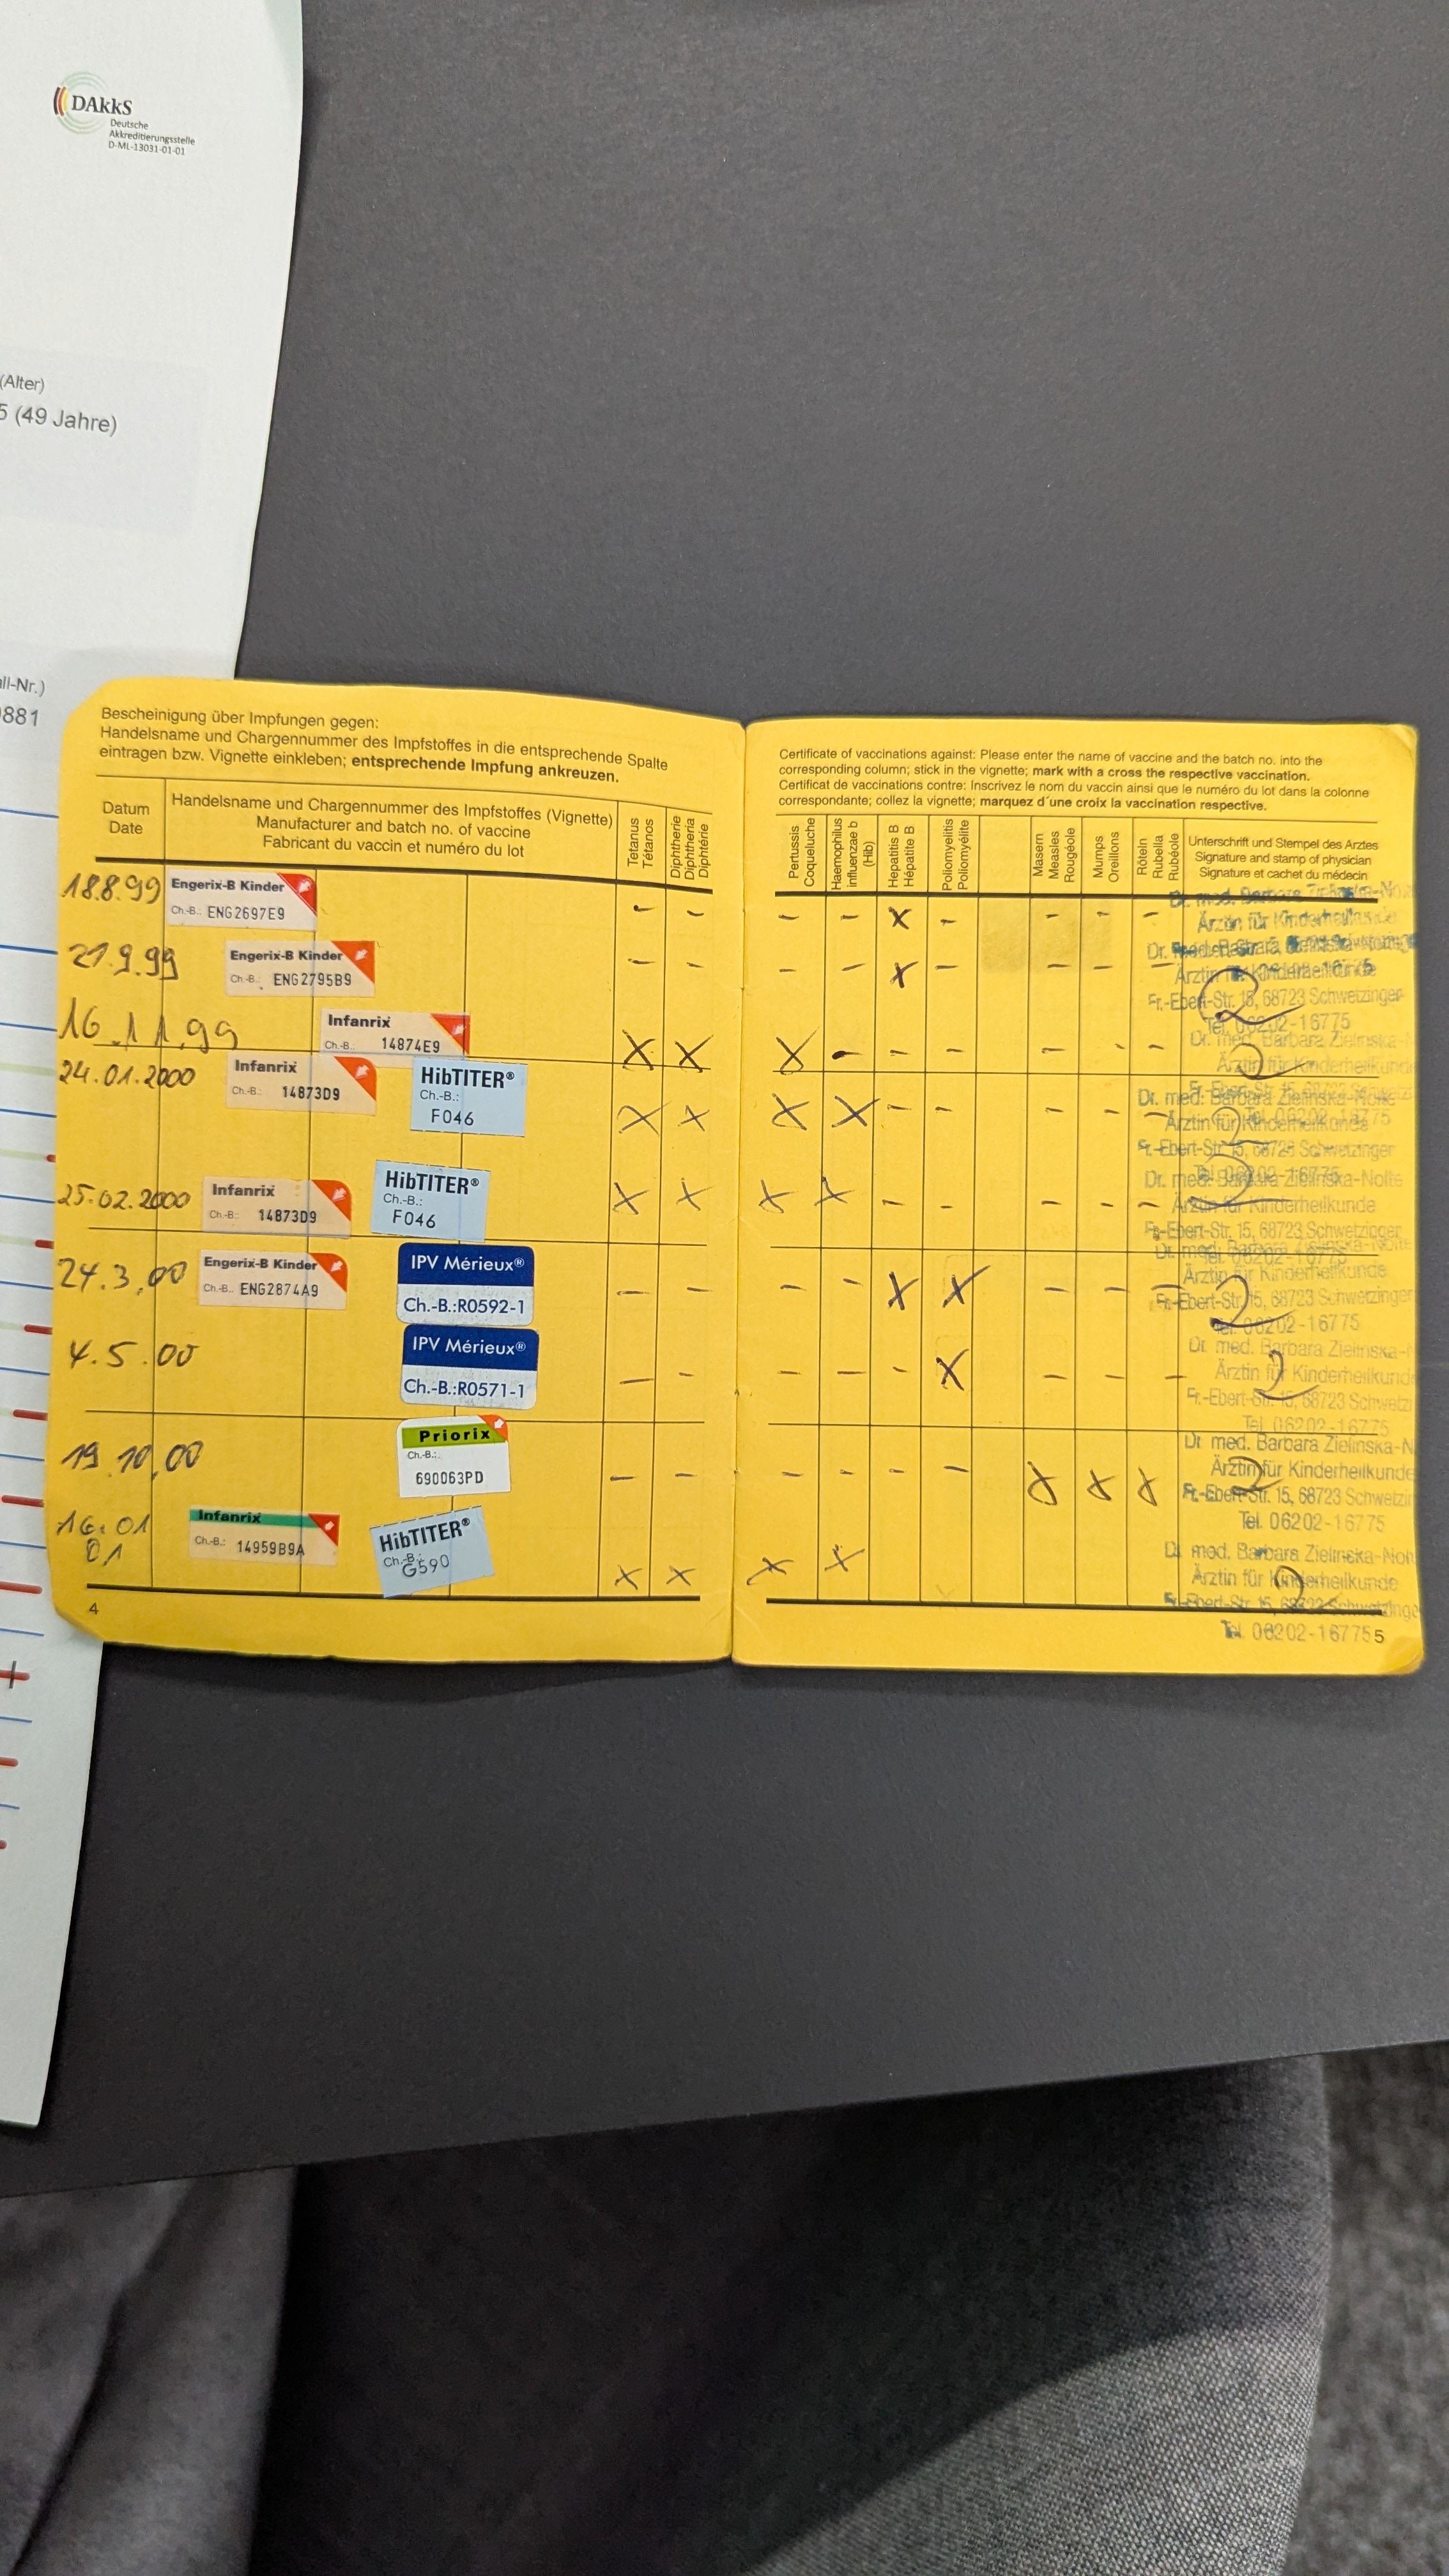 DAkkS
Deutsche
Akkreditierungsstelle
D-ML-13031-01-01
(Alter)
5 (49 Jahre)
ll-Nr.)
881
Bescheinigung über Impfungen gegen:
Handelsname und Chargennummer des Impfstoffes in die entsprechende Spalte
eintragen bzw. Vignette einkleben; entsprechende Impfung ankreuzen.
Datum
Date
Handelsname und Chargennummer des Impfstoffes (Vignette)
Manufacturer and batch no. of vaccine
Fabricant du vaccin et numéro du lot
Tetanus
Tétanos
Diphtherie
Diphtheria
Diphtérie
18.8.99
Engerix-B Kinder
Ch.-B.: ENG2697E9
21.9.99
Engerix-B Kinder
Ch.-B.: ENG2795B9
16.11.99
Infanrix
Ch.-B.: 14874E9
X X
24.01.2000
Infanrix
Ch.-B.: 14873D9
HibTITER®
Ch.-B.:
F046
X X
25.02.2000
Infanrix
Ch.-B.: 14873D9
HibTITER®
Ch.-B.:
F046
X X
24.3.00
Engerix-B Kinder
Ch.-B.: ENG2874A9
IPV Mérieux®
Ch.-B.:R0592-1
4.5.00
IPV Mérieux®
Ch.-B.:R0571-1
19.10.00
Priorix
Ch.-B.:
690063PD
16.01
01
Infanrix
Ch.-B.: 14959B9A
HibTITER®
Ch.-B.:
G590
X X
4
Certificate of vaccinations against: Please enter the name of vaccine and the batch no. into the
corresponding column; stick in the vignette; mark with a cross the respective vaccination.
Certificat de vaccinations contre: Inscrivez le nom du vaccin ainsi que le numéro du lot dans la colonne
correspondante; collez la vignette; marquez d´une croix la vaccination respective.
Pertussis
Coqueluche
Haemophilus
influenzae b
(Hib)
Hepatitis B
Hépatite B
Poliomyelitis
Poliomyélite
Masern
Measles
Rougéole
Mumps
Oreillons
Röteln
Rubella
Rubéole
Unterschrift und Stempel des Arztes
Signature and stamp of physician
Signature et cachet du médecin
X
Ärztin für Kinderheilkunde
X
Fr.-Ebert-Str. 15, 68723 Schwetzingen
Tel. 06202-16775
X
Dr. med. Barbara Zielinska-N
Ärztin für Kinderheilkunde
X X
Dr. med. Barbara Zielinska-Nolte
Ärztin für Kinderheilkunde
Fr.-Ebert-Str. 15, 68723 Schwetzingen
X X
Dr. med. Barbara Zielinska-Nolte
Ärztin für Kinderheilkunde
Fr.-Ebert-Str. 15, 68723 Schwetzingen
X X
Ärztin für Kinderheilkunde
Fr.-Ebert-Str. 15, 68723 Schwetzingen
Tel. 06202-16775
X
Dr. med. Barbara Zielinska-
Ärztin für Kinderheilkund
Fr.-Ebert-Str. 15, 68723 Schwetzi
Tel. 06202-16775
X X X
Dr med. Barbara Zielinska-N
Ärztin für Kinderheilkunde
Fr.-Ebert-Str. 15, 68723 Schwetzin
Tel. 06202-16775
X X
Dr med. Barbara Zielinska-Nolt
Ärztin für Kinderheilkunde
Fr.-Ebert-Str. 15, 68723 Schwetzinge
Tel. 06202-16775
5